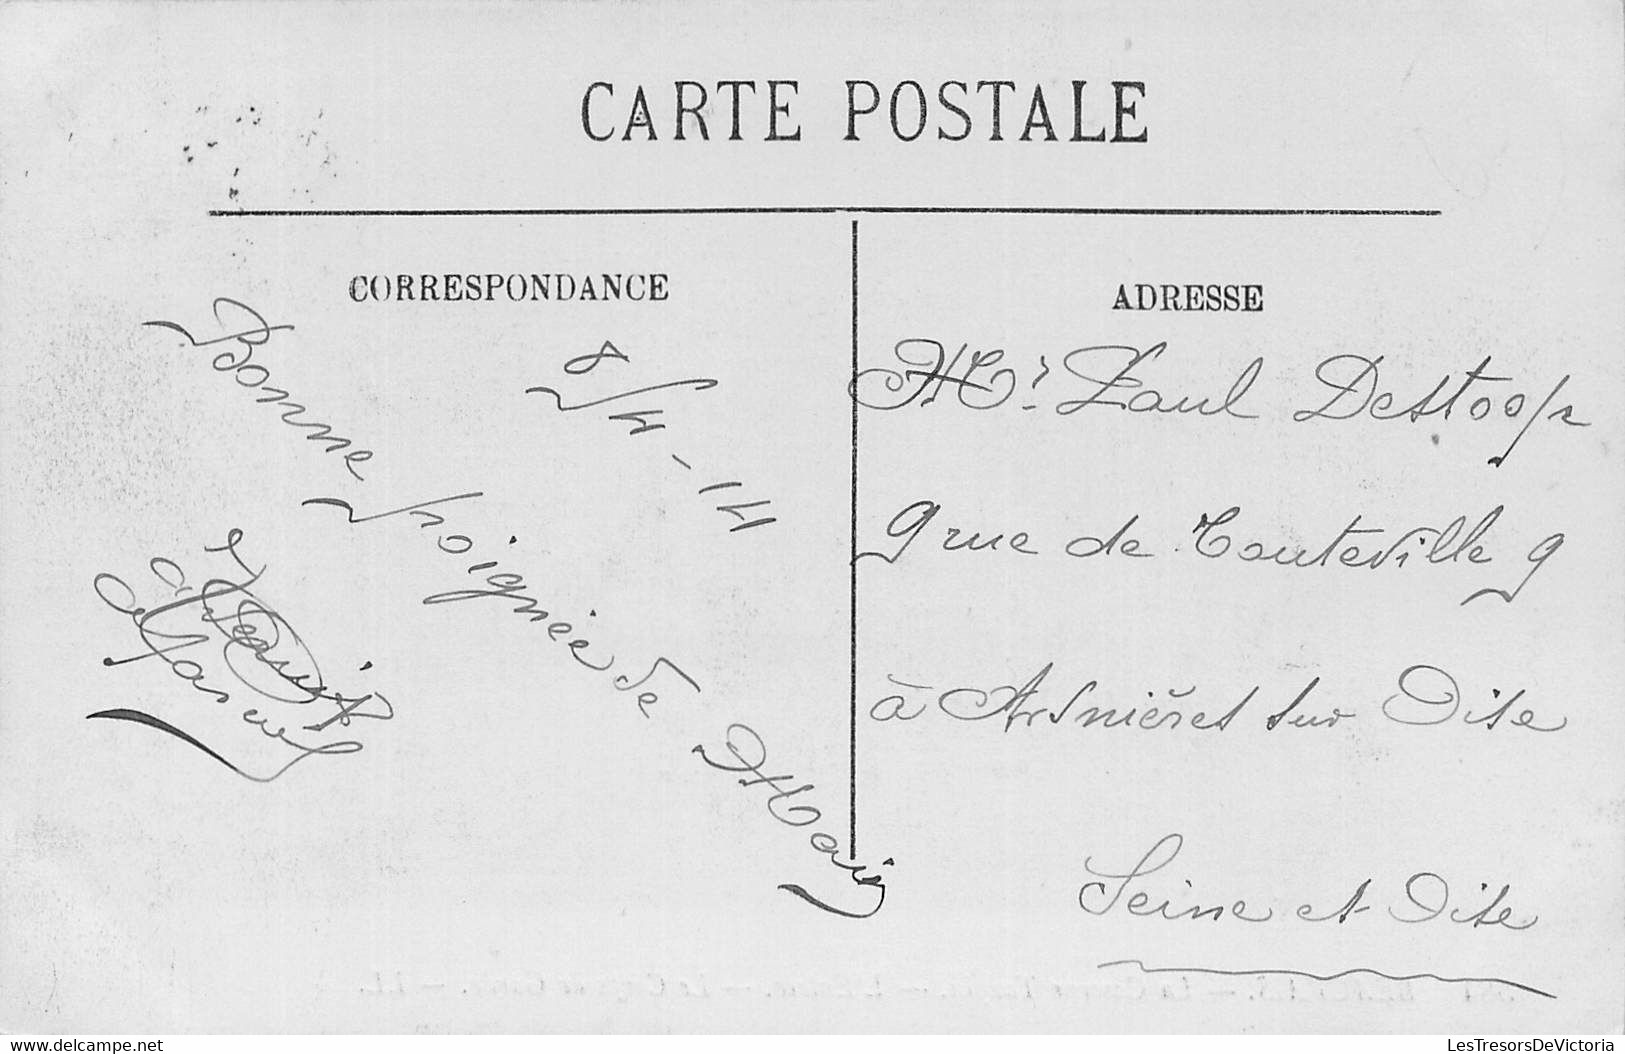 CARTE POSTALE
CORRESPONDANCE
8/4-14
Bonne poignée de
Main
Marcel
ADRESSE
Mr. Paul Destoop
9 rue de Touteville 9
à Asnières sur Oise
Seine et Oise
delcampe.net
LesTresorsDeVictoria